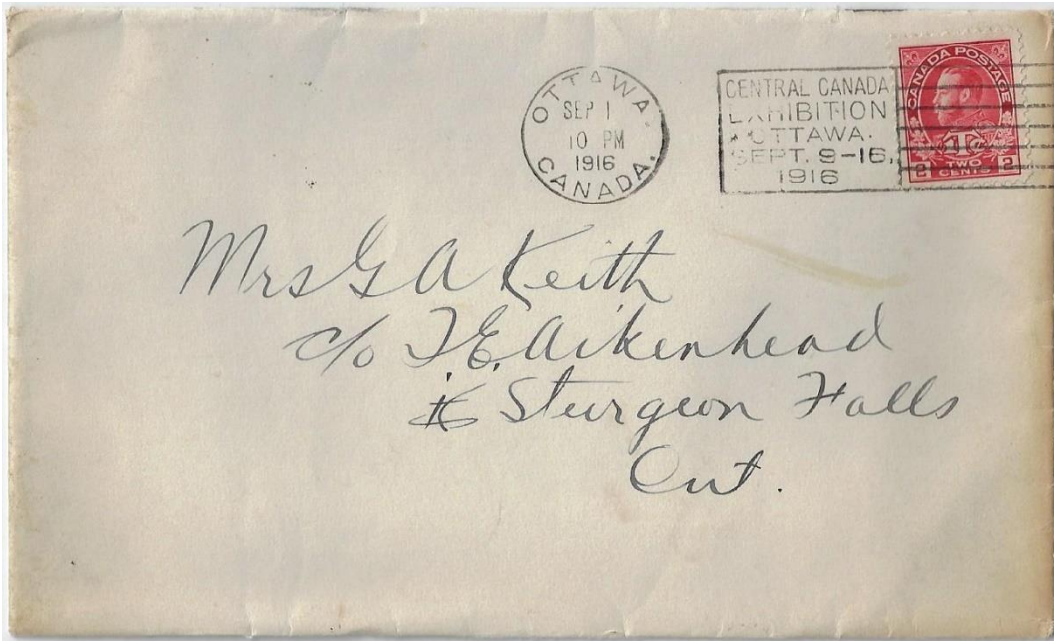 OTTAWA.
SEP 1
10 PM
1916
CANADA.
CENTRAL CANADA
EXHIBITION
OTTAWA.
SEPT. 9-16,
1916
CANADA POSTAGE
2 TWO CENTS 2
Mrs G A Keith
c/o T. E. Aikenhead
Sturgeon Falls
Ont.